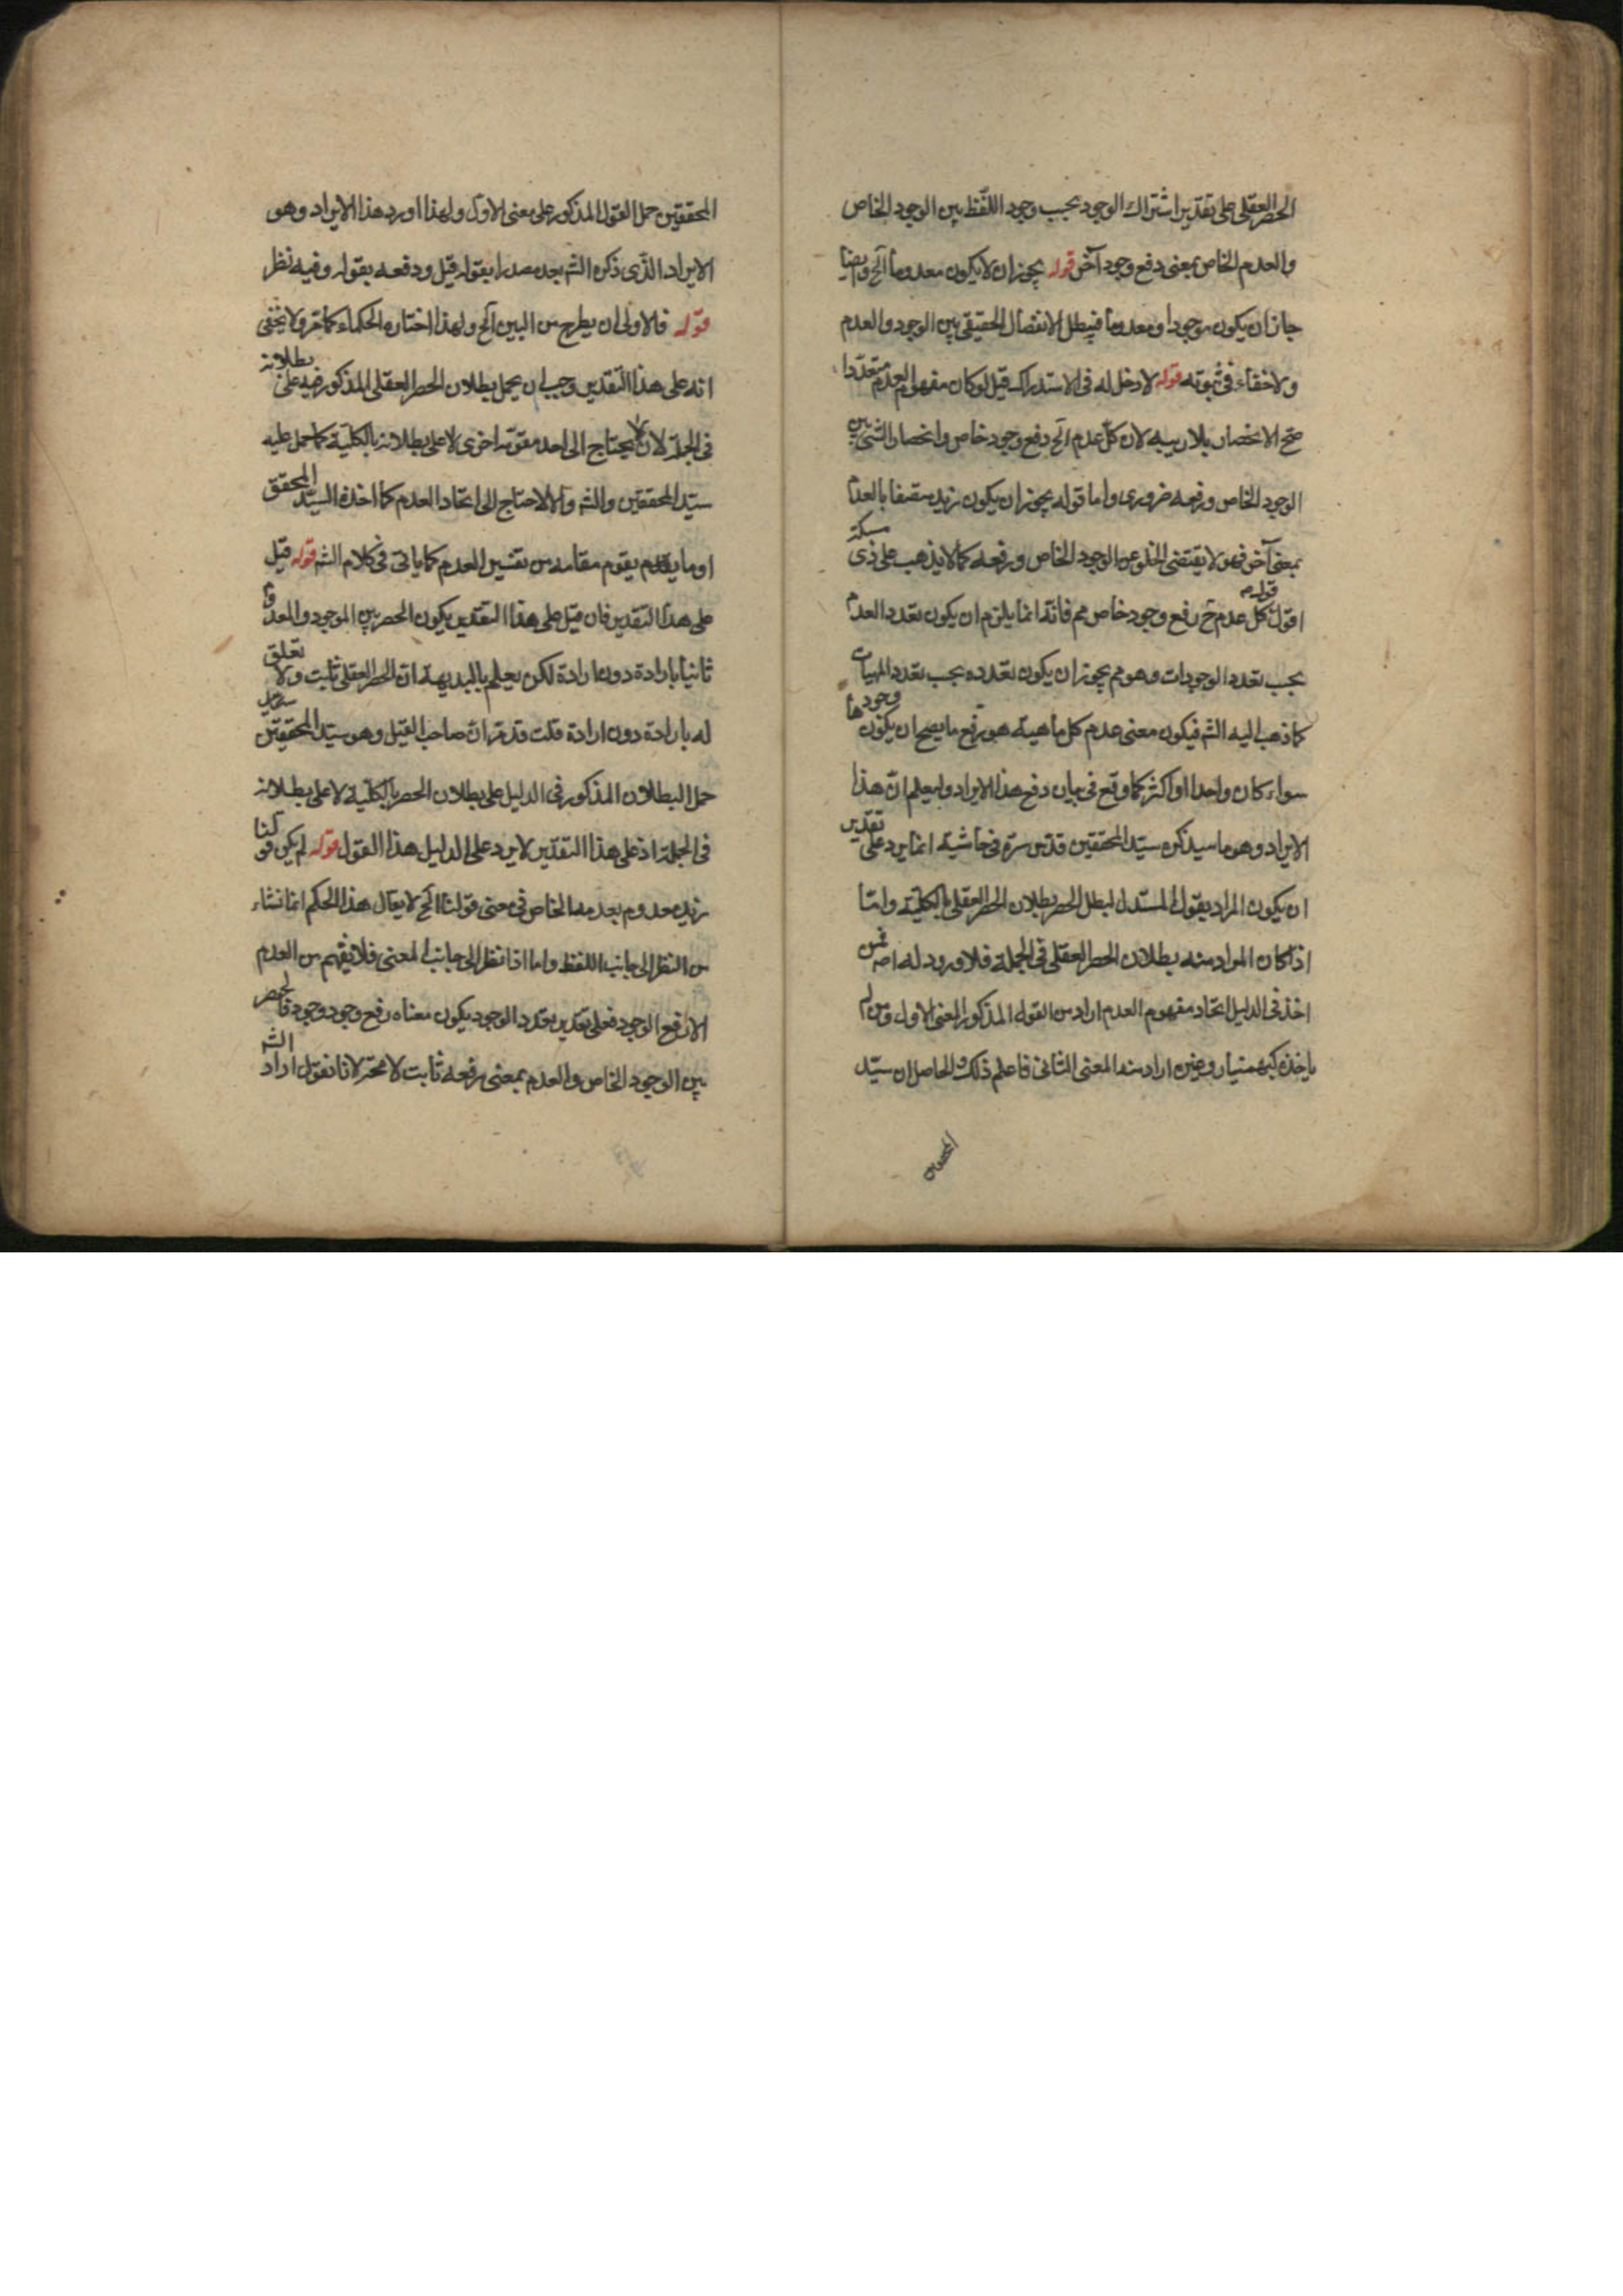 الحصر العقلى على تقدير اشتراك الوجود بحسب وجود اللفظ بين الوجود الخاص
والعدم الخاص بمعنى رفع وجود آخر قوله يجوز ان لا يكون معدوما الخ وايضا
جاز ان يكون موجودا ومعدوما فيبطل الانفصال الحقيقى بين الوجود والعدم
ولا خفاء فى ثبوته قوله لا دخل له فى الاستدراك قيل لو كان مفهوم العدم متعددا
صح الانحصار بلا ريبه لان كل عدم الخ رفع وجود خاص وانحصار الشئ بين
الوجود الخاص ورفعه ضرورى واما قوله يجوز ان يكون زيد متصفا بالعدم
بمعنى آخر فهو لا يقتضى الخلو عن الوجود الخاص ورفعه كما لا يذهب على ذى مسكة
اقول قوله كل عدم ح رفع وجود خاص مم فانه انما يلزم ان يكون تعدد العدم
بحسب تعدد الوجودات وهو مم يجوز ان يكون تعدده بحسب تعدد المهيات
كما ذهب اليه الشم فيكون معنى عدم كل ماهية هو رفع ما يصح ان يكون وجودها
سواء كان واحدا او اكثر كما وقع فى بيان دفع هذا الايراد وليعلم ان هذا
الايراد وهو ما سيذكره سيد المحققين قدس سره فى حاشيته انما يرد على تقدير
ان يكون المراد بقول المستدل ليبطل الحصر بطلان الحصر العقلى بالكلية واما
اذا كان المراد منه بطلان الحصر العقلى فى الجملة فلا ورود له اصه فمن
اخذ فى الدليل اتحاد مفهوم العدم اراد من القول المذكور المعنى الاول ومن لم
ياخذه كبهمنيار وغيره اراد منه المعنى الثانى فاعلم ذلك والحاصل ان سيد
المحققين حمل القول المذكور على معنى الاول ولهذا اورد هذا الايراد وهو
الايراد الذى ذكره الشم بعد مصدرا بقوله قيل ودفعه بقوله وفيه نظر
قوله فالاولى ان يطرح من البين الخ ولهذا اختاره الحكماء كما مر ولا يخفى
انه على هذا التقدير وجب ان يحمل بطلان الحصر العقلى المذكور فيه على بطلانه
فى الجملة لان لا يحتاج الى احد مقومه اخرى لا على بطلانه بالكلية كما حمل عليه
سيد المحققين والشم والا لاحتاج الى اتحاد العدم كما اخذه السيد المحقق
او ما يقوم مقامه من تفسير العدم كما ياتى فى كلام الشم قوله قيل
على هذا التقدير فان قيل على هذا التقدير يكون الحصر بين الموجود والمعدوم
ثانيا بارادة دون ارادة لكن يعلم بالبديهة ان الحصر العقلى ثابت ولا تعلق
له بارادة دون ارادة قلت قد مر ان صاحب القيل وهو سيد المحققين
حمل البطلان المذكور فى الدليل على بطلان الحصر بالكلية لا على بطلانه
فى الجملة اذ على هذا التقدير لا يرد على الدليل هذا القول قوله لم يكن قولنا
زيد معدوم بعدمه الخاص فى معنى قولنا الخ لا يقال هذا الحكم انما نشاء
من النظر الى جانب اللفظ واما اذا نظر الى جانب المعنى فلا يفهم من العدم
الا رفع الوجود فعلى تقدير تعدد الوجود يكون معناه رفع وجود وجود فالحصر
بين الوجود الخاص والعدم بمعنى رفعه ثابت لا محة لانا نقول اراد الشم